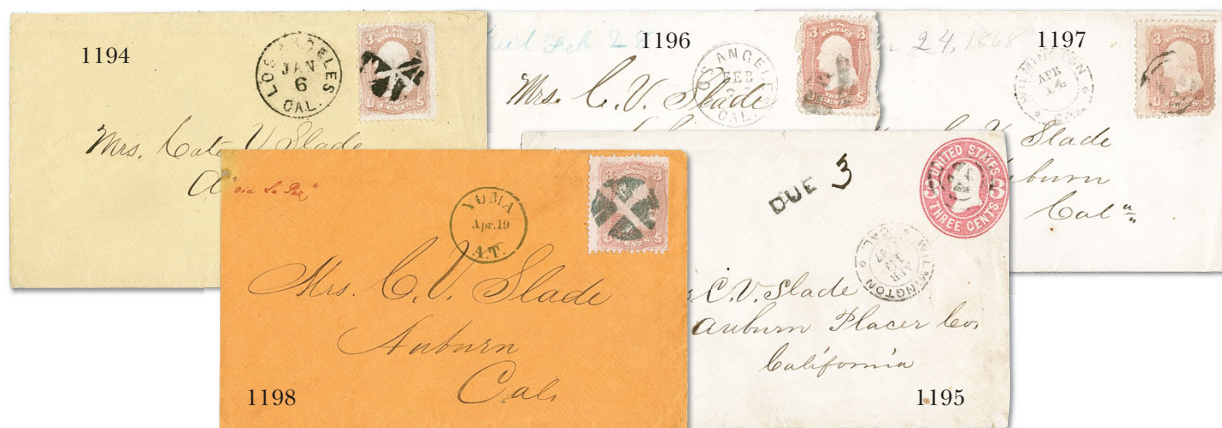 1194
LOS ANGELES
JAN
6
CAL.
3 3
U S
Mrs. Cate V Slade
"via La Paz"
1196
Feb 28
LOS ANGELES
FEB
CAL.
3 3
Mrs. C. V. Slade
1197
24, 1868
WILMINGTON
APR
14
CAL.
3 3
U S
Slade
Auburn
Cal"
1198
YUMA
Apr. 19
A.T.
3 3
U S
Mrs. C. V. Slade
Auburn
Cal.
DUE 3
UNITED STATES
3 3
THREE CENTS
WILMINGTON
APR
CAL.
C. V. Slade
Auburn Placer Co.
California
1195